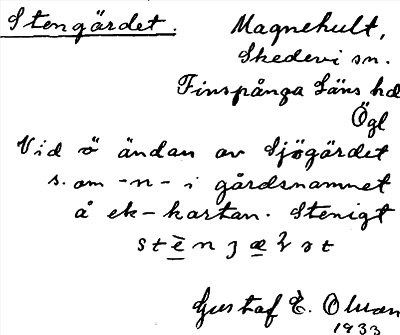 Stengärdet. Magnehult,
Skedevi sn.
Finspånga Läns hd
Ögl
Vid ö ändan av Sjögärdet
s. om -n- i gårdsnamnet
å ek-kartan. Stenigt
Gustaf E.
1933